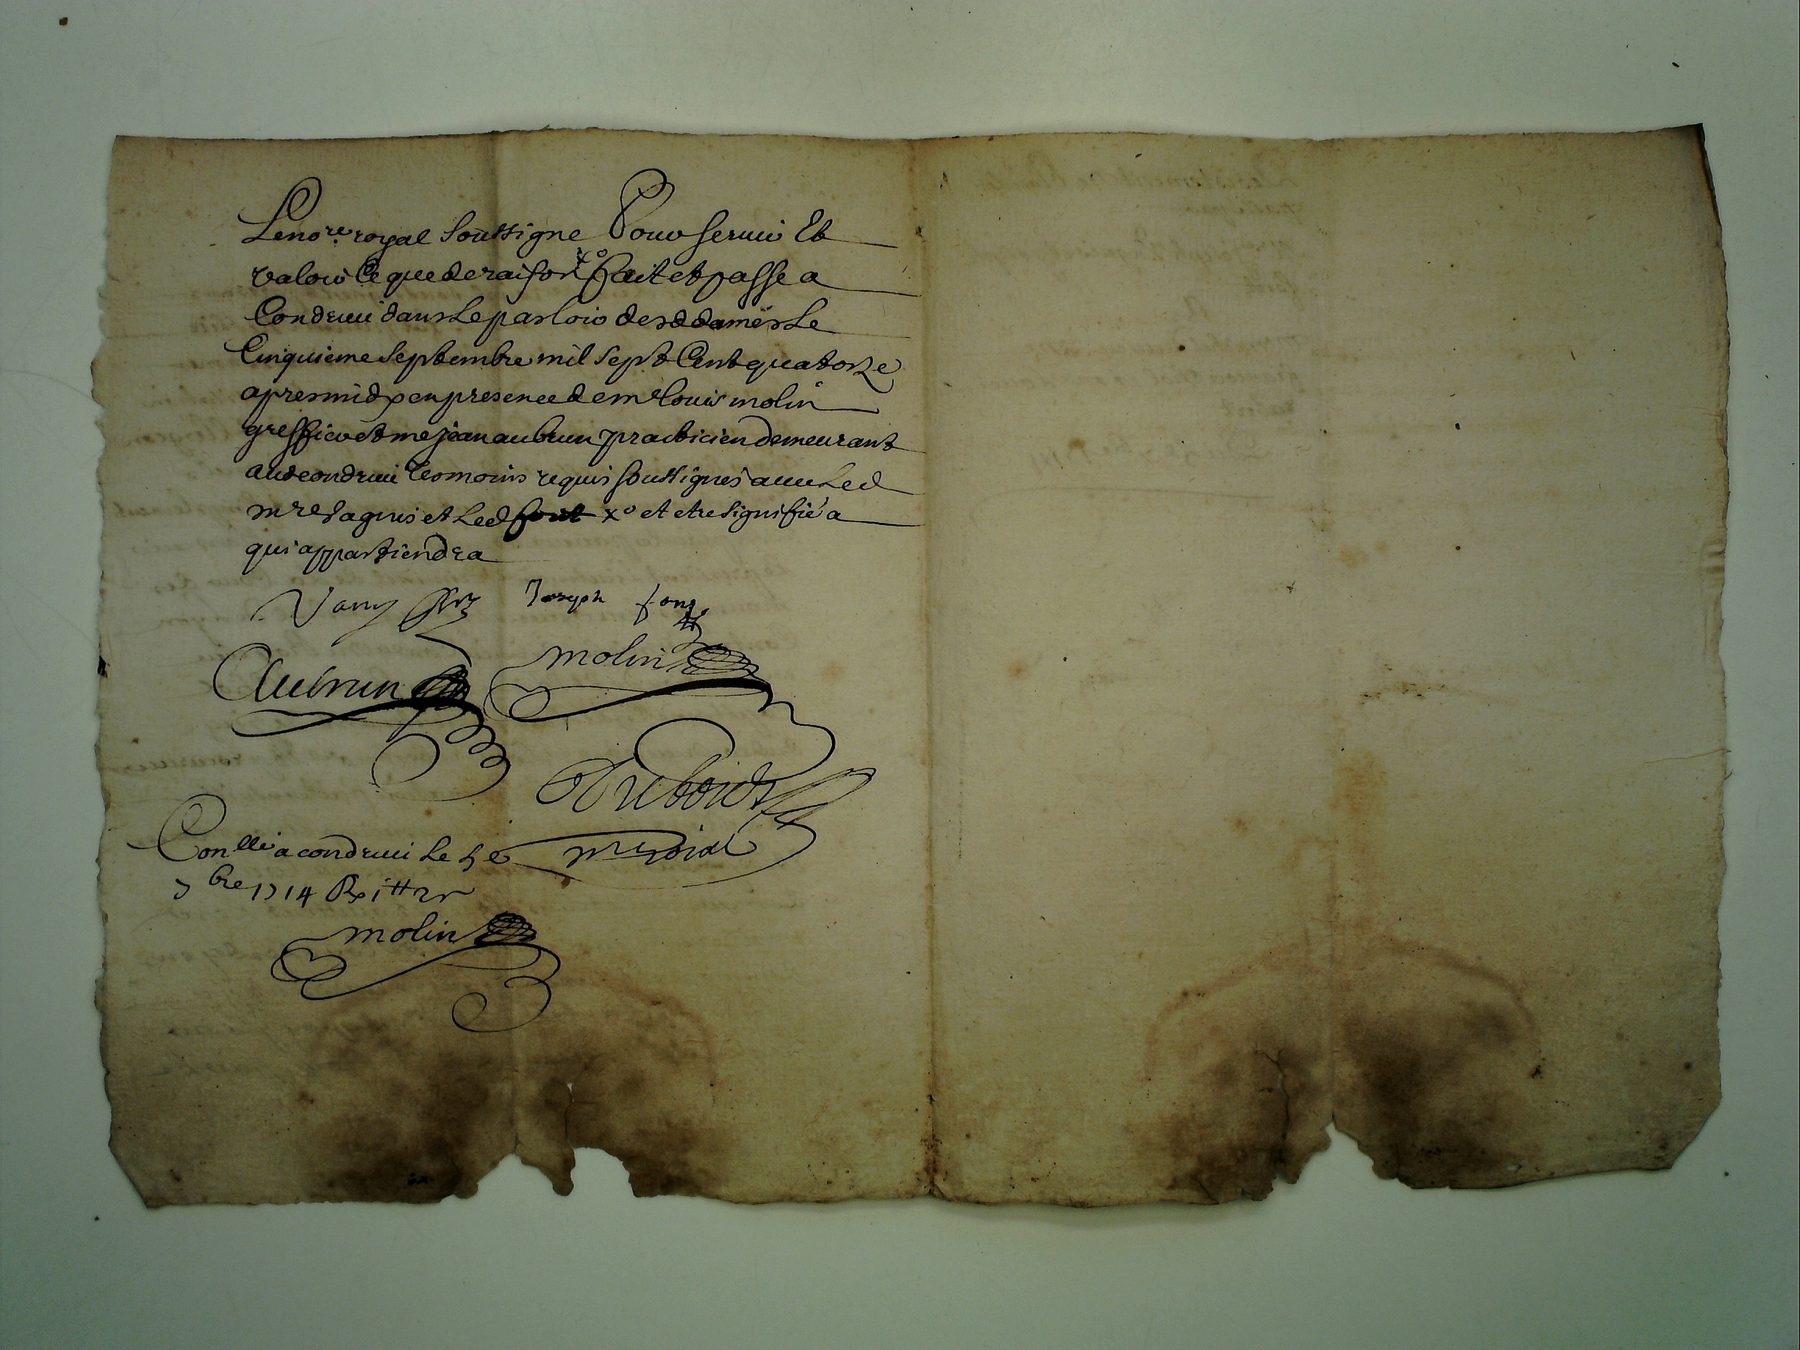 Le no.re royal soussigne Pour servir Et
valoir Ce que de raison x° fait et passe a
Condrieu dans Le parloir desd dames Le
Cinquieme Septembre mil Sept Cent quatorze
apres midy en presence de me Louis molin
greffier et me jean aubrun practicien demeurant
aud condrieu tesmoins requis soussignés avec Led
mre et Led font x° et etre signifié a
qui appartiendra
Joseph font
Aubrun molin
Dubois
Conllé a condrieu Le 5e nre roial
7bre 1714 R
molin